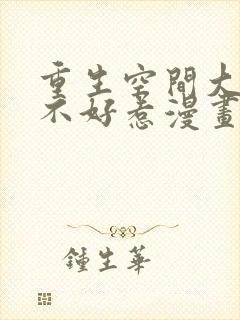 重生空間大
不好惹漫畫
鍾生華